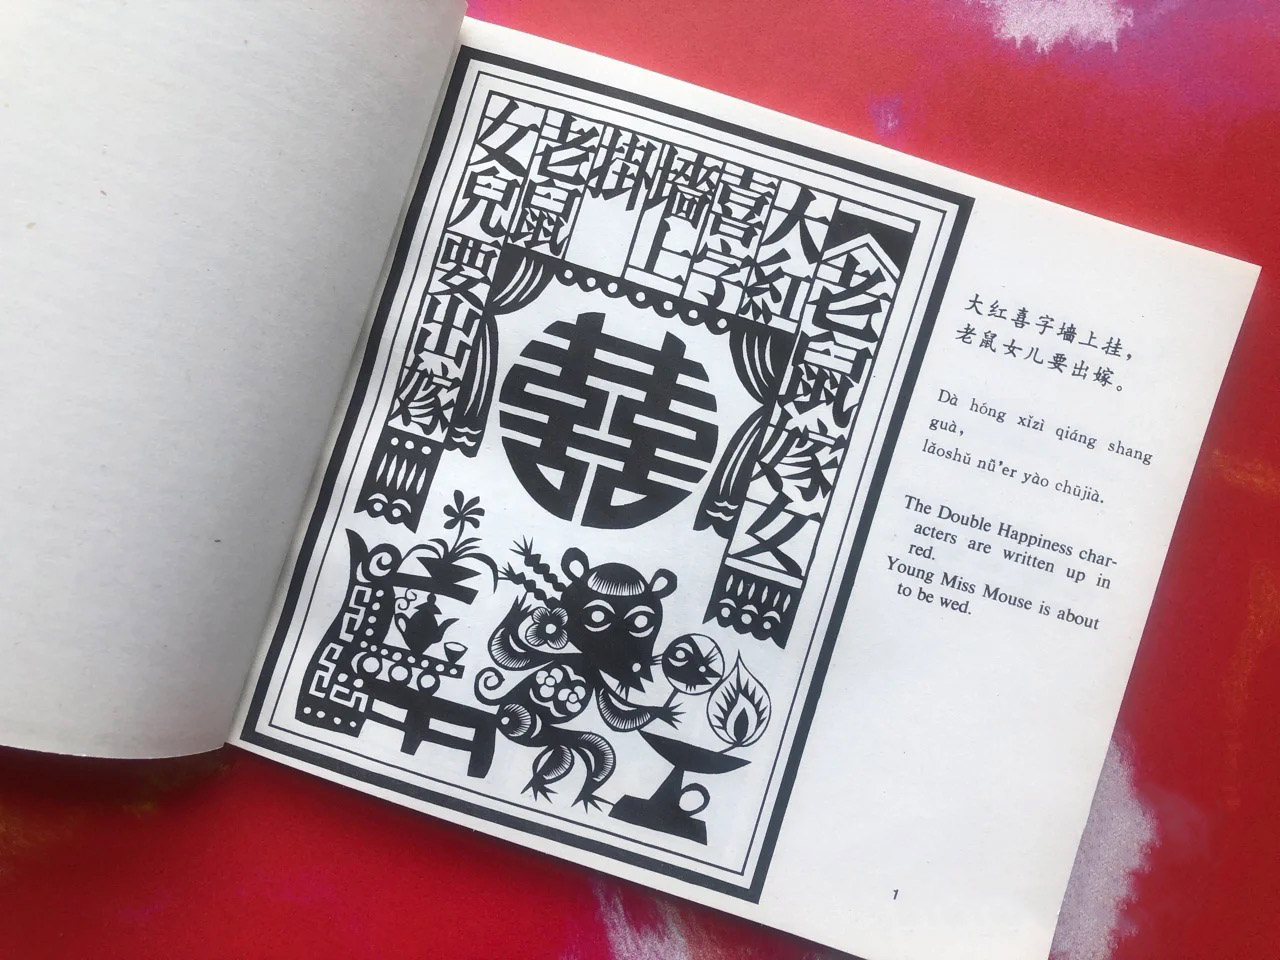 老鼠嫁女
大紅
喜字
墻上
掛
老鼠
女兒要出嫁
囍
大红喜字墙上挂，
老鼠女儿要出嫁。
Dà hóng xǐzì qiáng shang
guà,
lǎoshǔ nǚ'er yào chūjià.
The Double Happiness char-
acters are written up in
red.
Young Miss Mouse is about
to be wed.
1